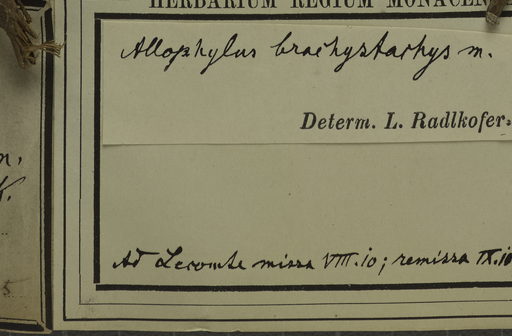 HERBARIUM REGIUM MONACEN
Allophylus brachystachys m.
Determ. L. Radlkofer.
Ad Lecomte missa VIII.10; remissa IX.10
n.
K.
5